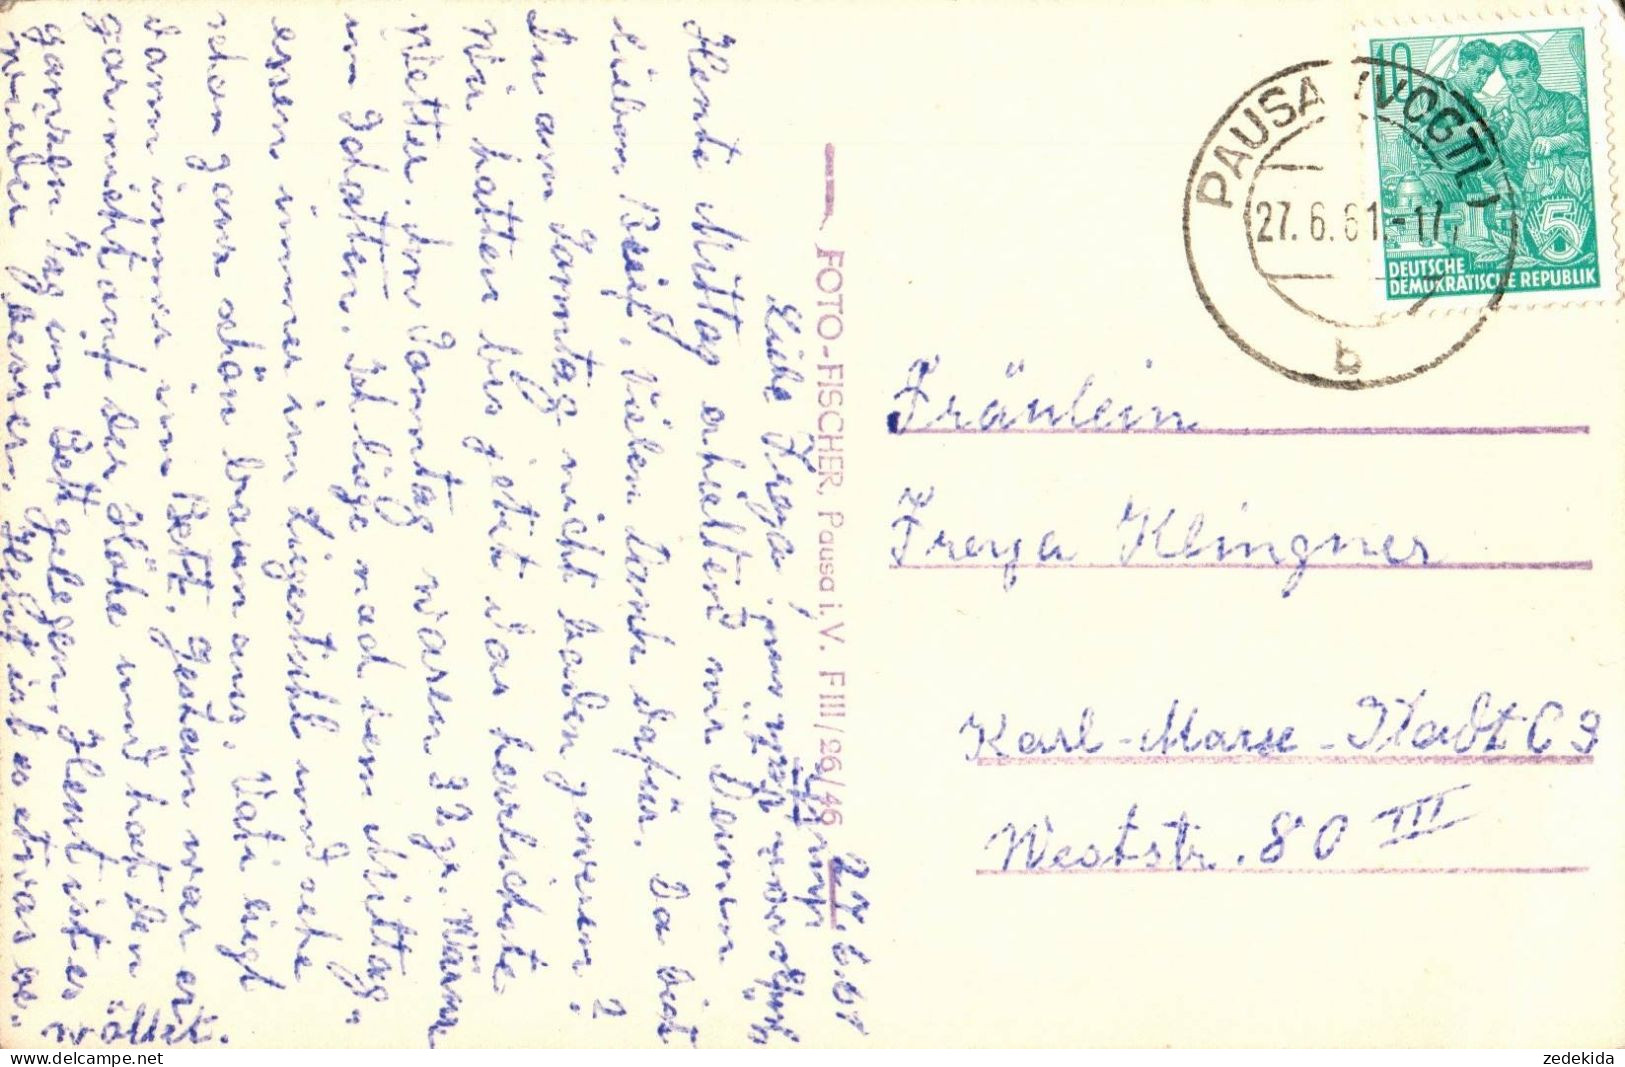 27.6.61
Liebe Freya
Heute Mittag erhielten wir Deinen
lieben Brief. Vielen Dank dafür. Da bist
Du am Sonntag nicht baden gewesen?
Wir hatten bis jetzt das herrlichste
Wetter. Am Sonntag waren 32 gr. Wärme
im Schatten. Ich liege nach dem Mittag-
essen immer im Liegestuhl und sehe
schon ganz schön braun aus. Vati liegt
dann immer im Bett. Gestern war er
gar nicht auf der Höhe und hat den
ganzen Tag im Bett gelegen. Heut ist es
wieder besser. Jetzt ist es etwas be-
wölkt.
FOTO-FISCHER, Pausa i. V. F III/26/46
PAUSA (VOGTL)
27.6.61.-17
b
10
5
DEUTSCHE
DEMOKRATISCHE REPUBLIK
Fräulein
Freya Klingner
Karl-Marx-Stadt C 9
Weststr. 80 III
zedekida